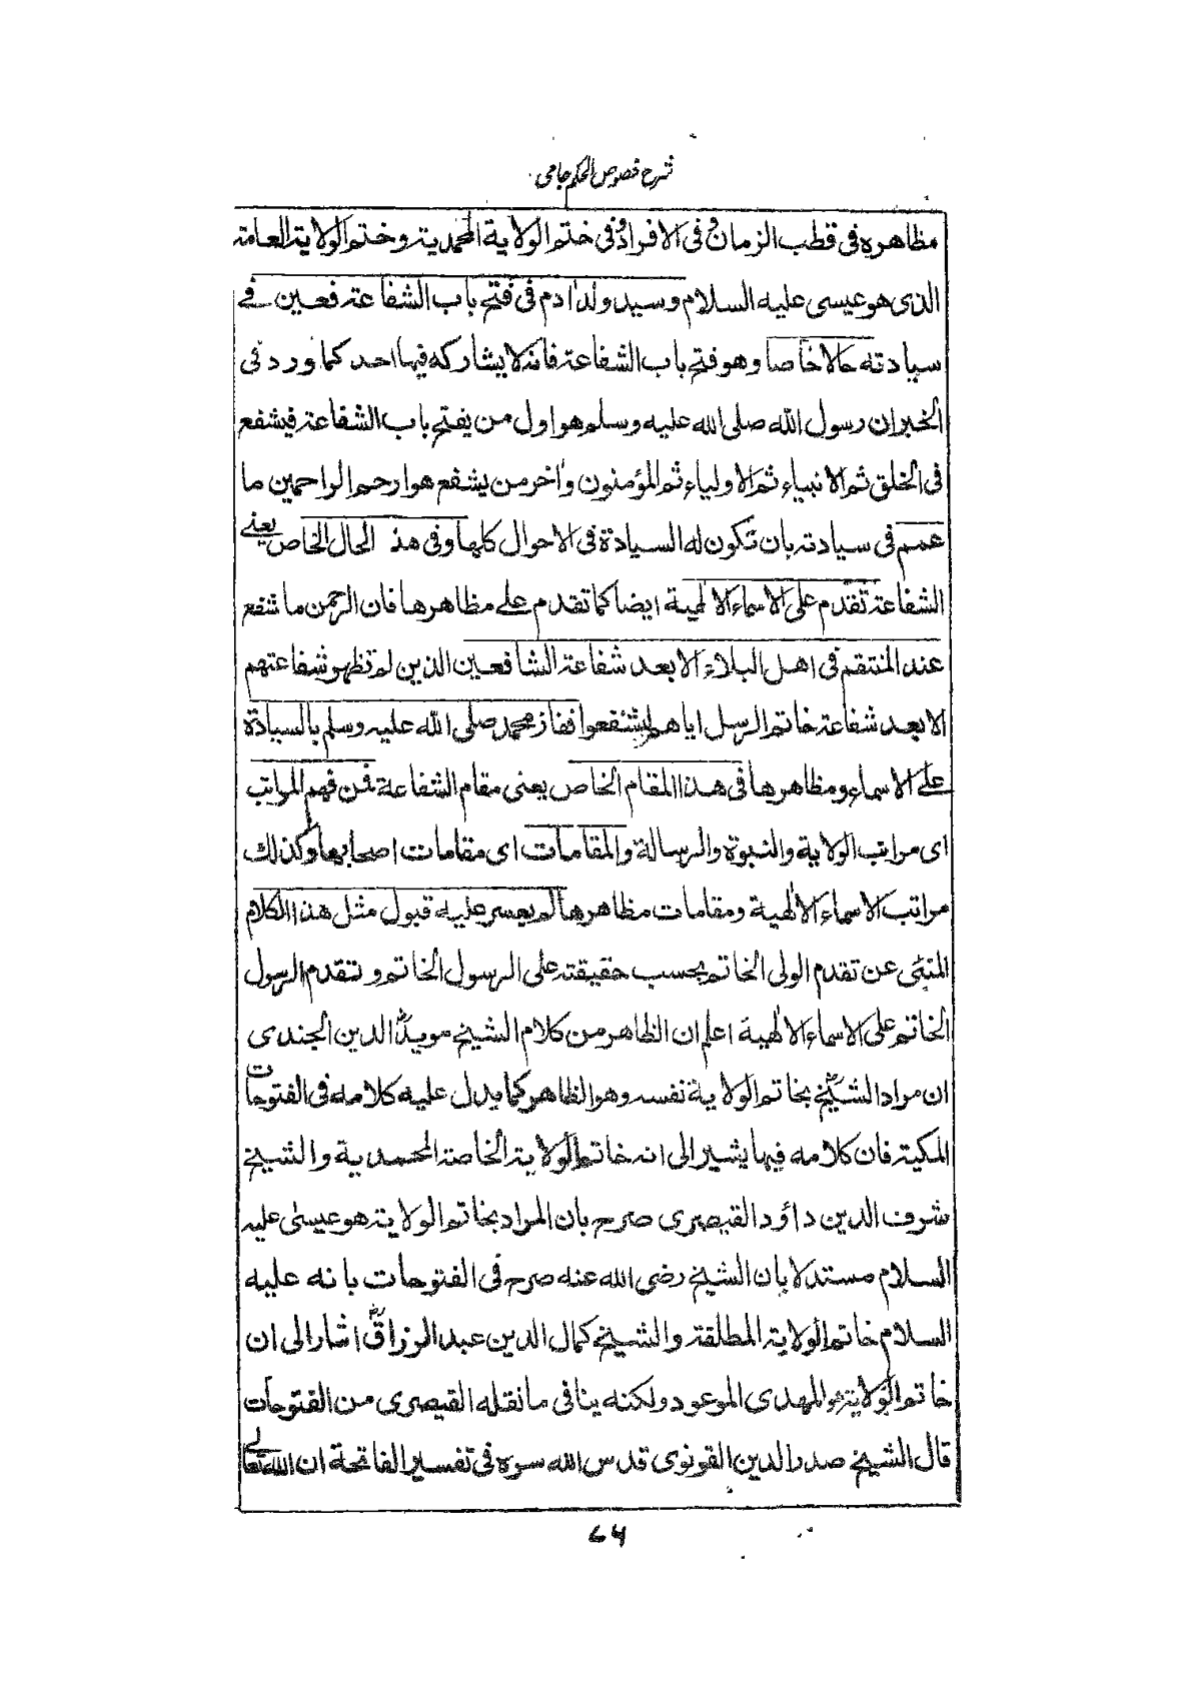 شرح فصوص الحکم جامی
مظاهره فی قطب الزمان و فی الافراد و فی ختم الولایة المحمدیة و ختم الولایة العامة
الذی هو عیسی علیه السلام وسید ولد اٰدم فی فتح باب الشفاعة فعین فے
سیادته حالا خاصا وهو فتح باب الشفاعة فانه لا یشارکه فیها احد کما ورد فی
الخبر ان رسول الله صلی الله علیه وسلم هو اول من یفتح باب الشفاعة فیشفع
فی الخلق ثم الانبیاء ثم الاولیاء ثم المؤمنون واٰخر من یشفع هو ارحم الراحمین ما
عمم فی سیادته بان تکون له السیادة فی الاحوال کلها وفی هذ الحال الخاص یعنے
الشفاعة تقدم علی الاسماء الالٰهیة ایضا کما تقدم علے مظاهرها فان الرحمن ما شفع
عند المنتقم فی اهل البلاء الا بعد شفاعة الشافعین الذین لم تظهر شفاعتهم
الا بعد شفاعة خاتم الرسل ایاهم لیشفعوا ففاز محمد صلی الله علیه وسلم بالسیادة
علے الاسماء ومظاهرها فی هذا المقام الخاص یعنی مقام الشفاعة فمن فهم المراتب
ای مراتب الولایة والنبوة والرسالة والمقامات ای مقامات اصحابها وکذلك
مراتب الاسماء الالٰهیة ومقامات مظاهرها لم یعسر علیه قبول مثل هذا الکلام
المنبئی عن تقدم الولی الخاتم بحسب حقیقته علی الرسول الخاتم و تقدم الرسول
الخاتم علی الاسماء الالٰهیة اعلم ان الظاهر من کلام الشیخ موید الدین الجندی
ان مراد الشیخ بخاتم الولایة نفسه وهو الظاهر کما یدل علیه کلامه فی الفتوحات
المکیة فان کلامه فیها یشیر الی انه خاتم الولایة الخاصة المحمدیة والشیخ
شرف الدین داؤد القیصری صرح بان المراد بخاتم الولایة هو عیسٰی علیه
السلام مستدلا بان الشیخ رضی الله عنه صرح فی الفتوحات بانه علیه
السلام خاتم الولایة المطلقة والشیخ کمال الدین عبد الرزاق اشار الی ان
خاتم الولایة هو المهدی الموعود ولکنه ینافی ما نقله القیصری من الفتوحات
قال الشیخ صدر الدین القونوی قدس الله سره فی تفسیر الفاتحة ان الله تعالے